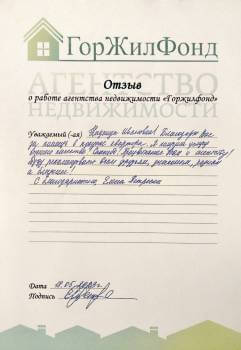 ГорЖилФонд
АГЕНТСТВО
НЕДВИЖИМОСТИ
Отзыв
о работе агентства недвижимости «Горжилфонд»
Уважаемый (-ая) Надежда Ивановна! Благодарю Вас
за помощь в продаже квартиры. Я получила услугу
высокого качества. Спасибо! Процветания Вам и агентству!
Буду рекомендовать Вас друзьям, знакомым, родным
и близким!
С благодарностью Елена Петровна
Дата 11.05.
Подпись